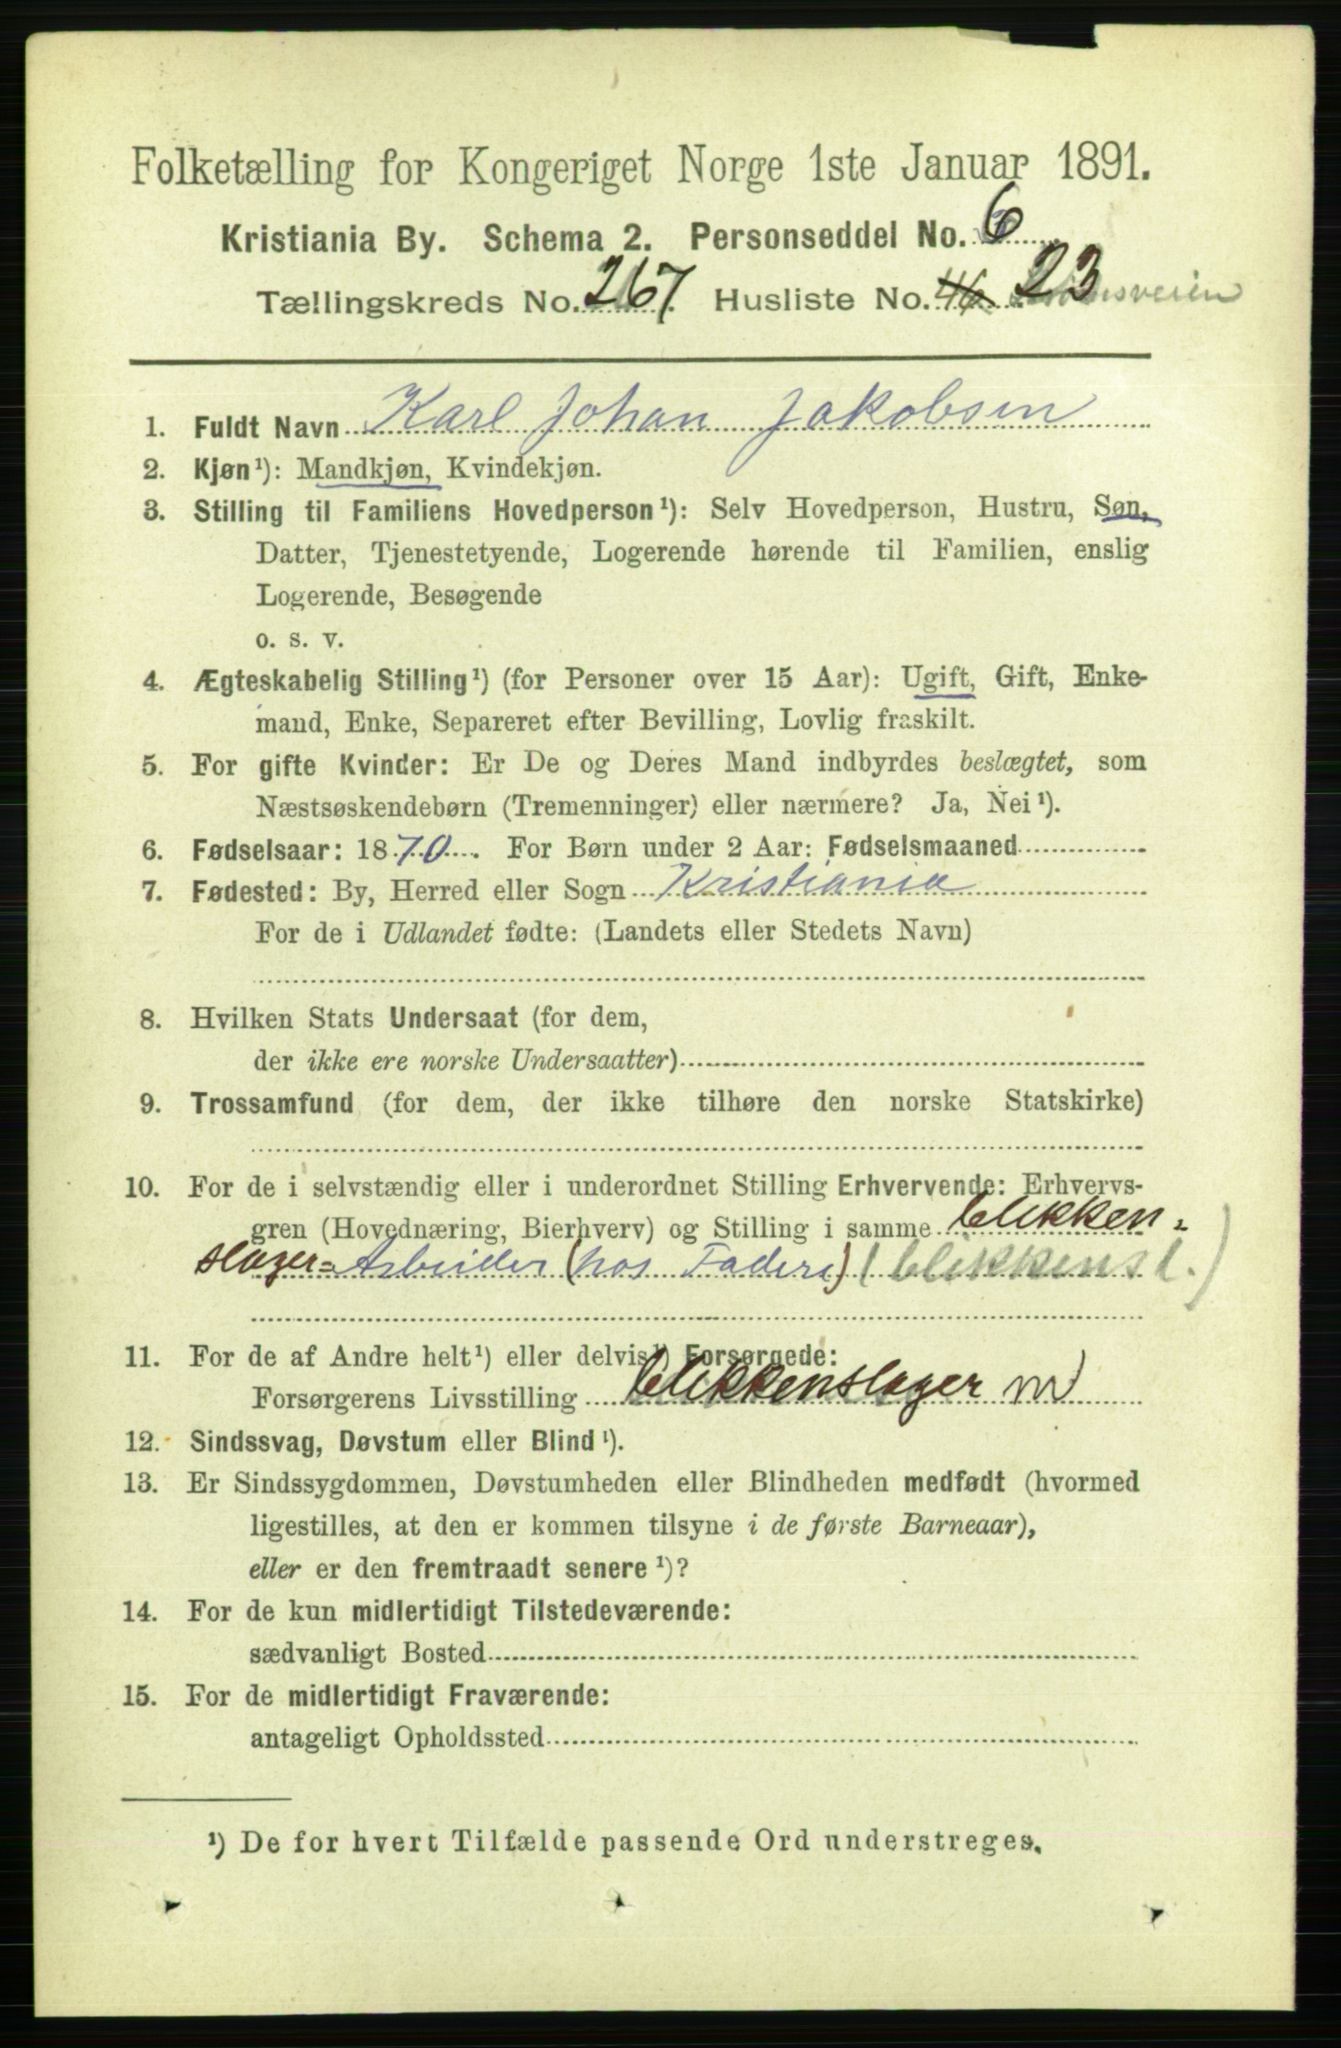 Folketælling for Kongeriget Norge 1ste Januar 1891.
Kristiania By. Schema 2. Personseddel No. 6
Tællingskreds No. 267. Husliste No. 46 23
1. Fuldt Navn Karl Johan Jakobsen
2. Kjøn¹): Mandkjøn, Kvindekjøn.
3. Stilling til Familiens Hovedperson¹): Selv Hovedperson, Hustru, Søn,
Datter, Tjenestetyende, Logerende hørende til Familien, enslig
Logerende, Besøgende
o. s. v.
4. Ægteskabelig Stilling¹) (for Personer over 15 Aar): Ugift, Gift, Enke-
mand, Enke, Separeret efter Bevilling, Lovlig fraskilt.
5. For gifte Kvinder: Er De og Deres Mand indbyrdes beslægtet, som
Næstsøskendebørn (Tremenninger) eller nærmere? Ja, Nei¹).
6. Fødselsaar: 1870. For Børn under 2 Aar: Fødselsmaaned
7. Fødested: By, Herred eller Sogn Kristiania
For de i Udlandet fødte: (Landets eller Stedets Navn)
8. Hvilken Stats Undersaat (for dem,
der ikke ere norske Undersaatter)
9. Trossamfund (for dem, der ikke tilhøre den norske Statskirke)
10. For de i selvstændig eller i underordnet Stilling Erhvervende: Erhvervs-
gren (Hovednæring, Bierhverv) og Stilling i samme blikken=
slager=Arbeider (hos Fadere) (blikkensl.)
11. For de af Andre helt¹) eller delvist¹) Forsørgede:
Forsørgerens Livsstilling blikkenslager m
12. Sindssvag, Døvstum eller Blind¹).
13. Er Sindssygdommen, Døvstumheden eller Blindheden medfødt (hvormed
ligestilles, at den er kommen tilsyne i de første Barneaar),
eller er den fremtraadt senere¹)?
14. For de kun midlertidigt Tilstedeværende:
sædvanligt Bosted
15. For de midlertidigt Fraværende:
antageligt Opholdssted
¹) De for hvert Tilfælde passende Ord understreges.